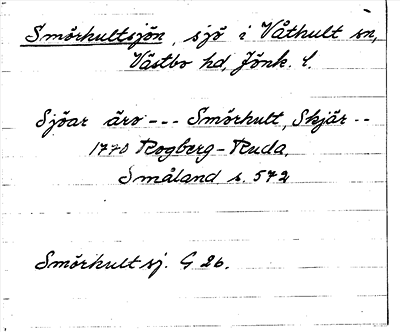 Smörhultsjön, sjö i Våthult sn,
Västbo hd, Jönk. l.
Sjöar äro --- Smörhult, Skjär --
1770 Rogberg-Ruda,
Småland s. 572
Smörhult sj. G 26.